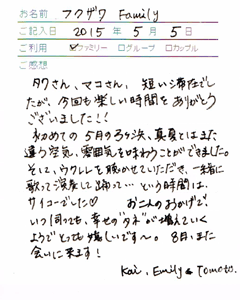 お名前 フクザワ Family
ご記入日 2015年 5月 5日
ご利用 ☑ファミリー □グループ □カップル
ご感想
タクさん、マコさん、短い滞在でし
たが、今回も楽しい時間をありがとう
ございました!!
初めての5月のろケ浜、真夏とはまた
違う空気、雰囲気を味わうことができました。
そして、ウクレレを聴かせていただき、一緒に
歌って演奏して踊って…という時間は、
サイコーでした♡ お二人のおかげで
いつ伺っても、幸せの"タネ"が増えていく
ようでとっても嬉しいです〜。8月、また
会いに来ます!
Kai, Emily & Tomoto.